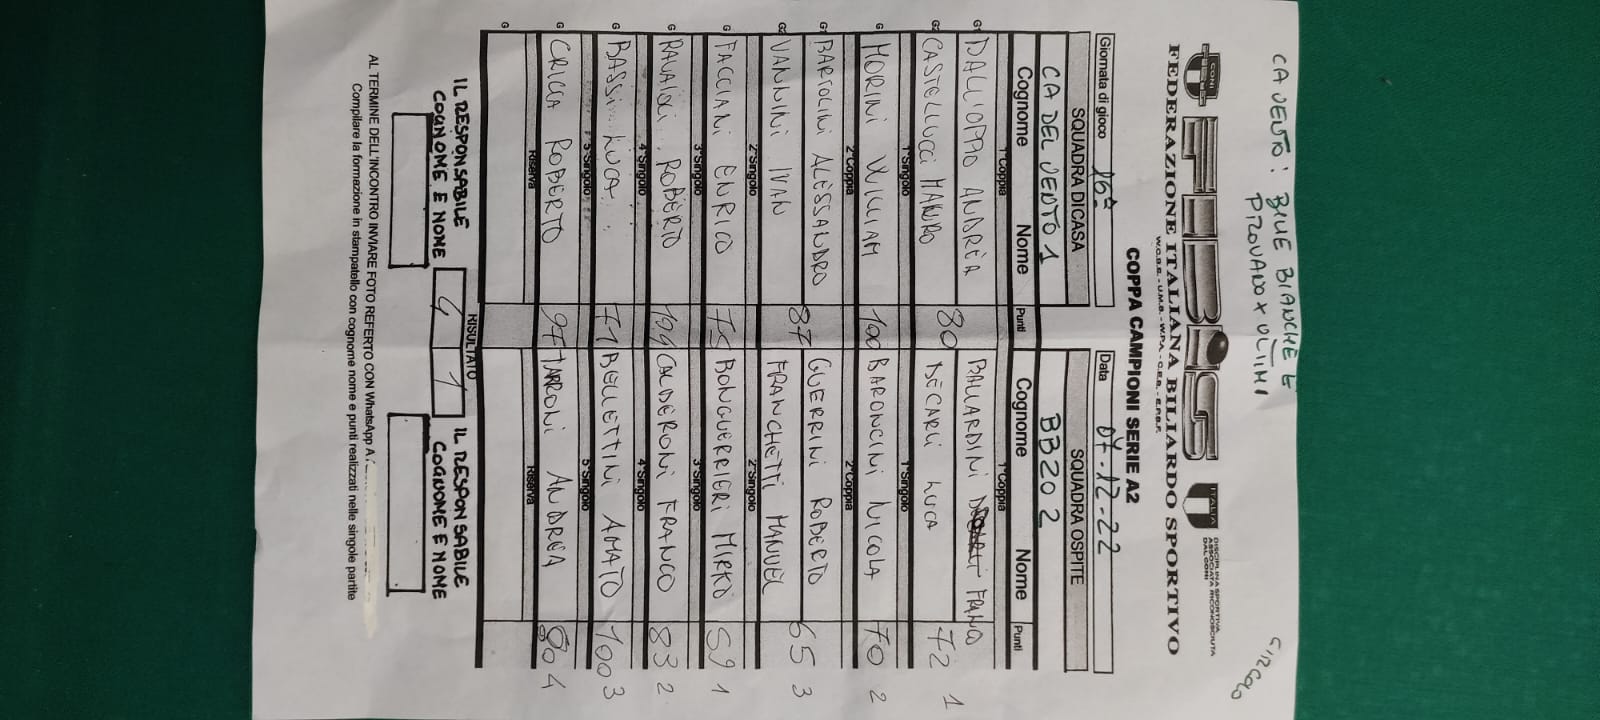 CA VENTO: BLUE BIANCHE E
PROVANO X ULTIMI
CIRCOLO
CONI
FIBiS
ITALIA
DISCIPLINA SPORTIVA
ASSOCIATA RICONOSCIUTA
DAL CONI
FEDERAZIONE ITALIANA BILIARDO SPORTIVO
COPPA CAMPIONI SERIE A2
Giornata di gioco 16ª Data 07-12-22
SQUADRA DI CASA SQUADRA OSPITE
CA DEL VENTO 1 BB20 2
Cognome Nome Punti Cognome Nome Punti
1°Coppia 1°Coppia
G1 DALL'OPPIO ANDREA BALLARDINI FRANCO
G2 CASTELLUCCI MAURO 80 DECARLI LUCA 72 1
1°Singolo 1°Singolo
G MORINI WILLIAM 100 BARONCINI NICOLA 70 2
2°Coppia 2°Coppia
G1 BARTOLINI ALESSANDRO 87 GUERRINI ROBERTO 65 3
G2 VANNINI IVAN FRANCHETTI MANUEL
2°Singolo 2°Singolo
G FACCIANI ENRICO 75 BONGUERRIERI MIRKO 59 1
3°Singolo 3°Singolo
G RAVAIOLI ROBERTO CALDERONI FRANCO 83 2
4°Singolo 4°Singolo
G BASSI LUCA 71 BELLETTINI AMATO 100 3
5°Singolo 5°Singolo
G CRICCA ROBERTO 97 TARRONI ANDREA 80 4
Riserva Riserva
G
RISULTATO
IL RESPONSABILE 4 1 IL RESPONSABILE
COGNOME E NOME COGNOME E NOME
AL TERMINE DELL'INCONTRO INVIARE FOTO REFERTO CON WhatsApp A
Compilare la formazione in stampatello con cognome nome e punti realizzati nelle singole partite